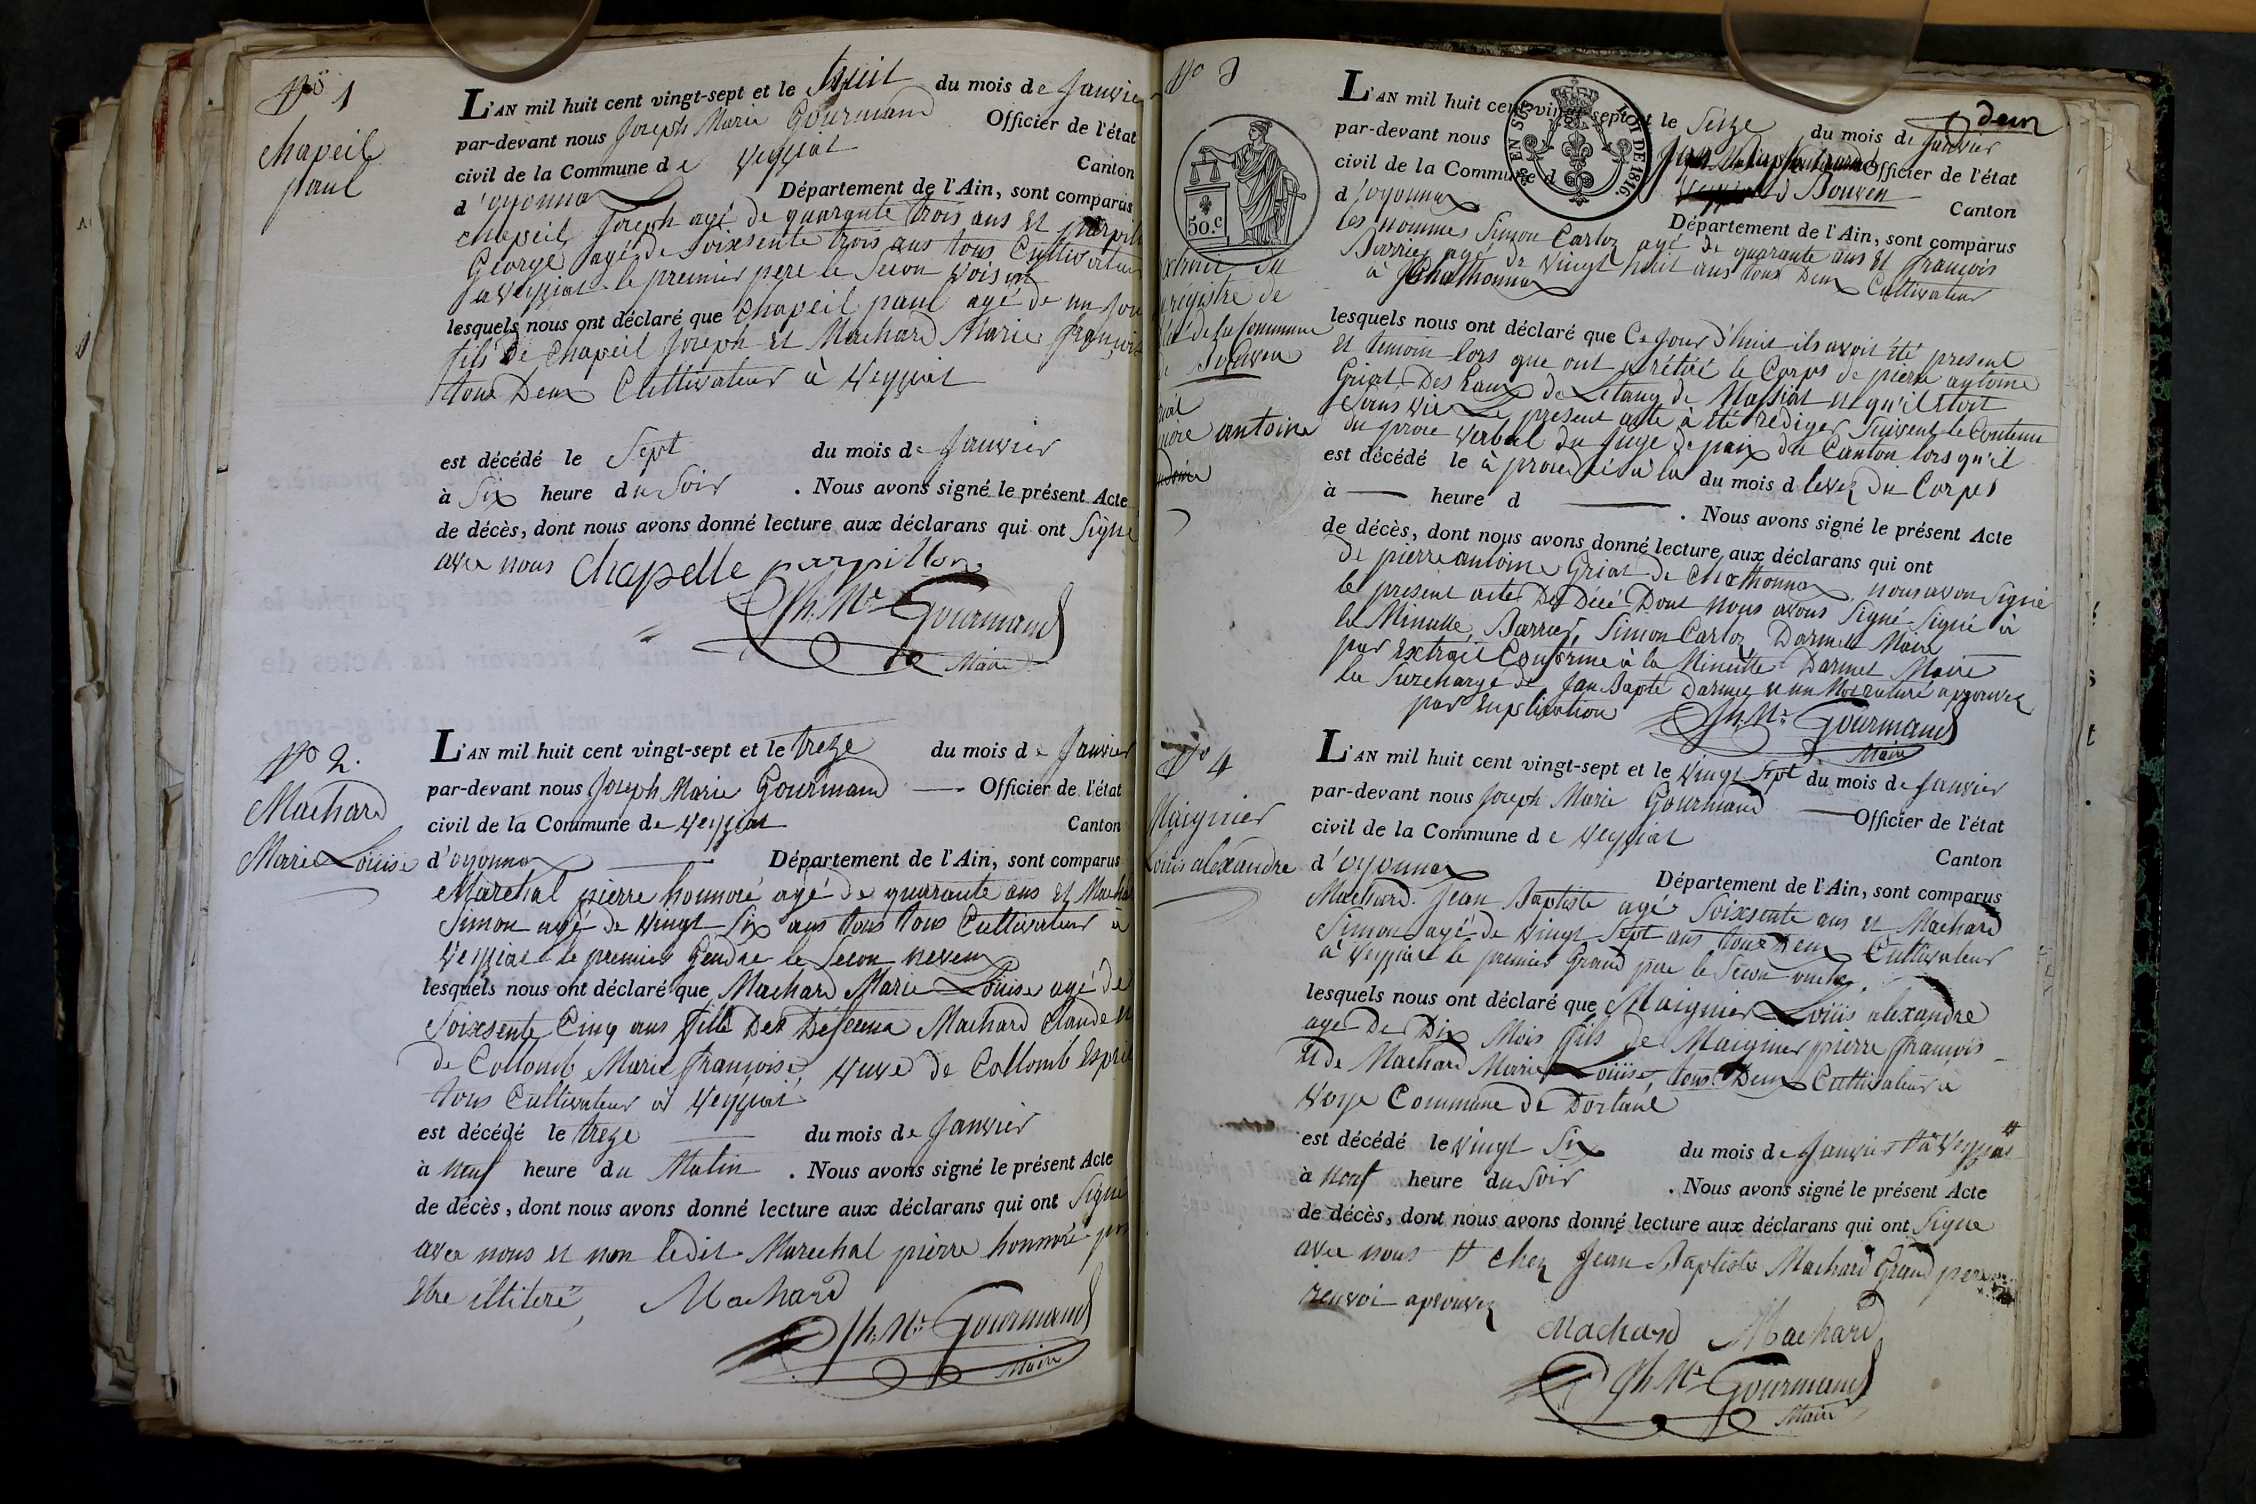 No 1
chapeil
paul
L'AN mil huit cent vingt-sept et le huit du mois de Janvier
par-devant nous Joseph Marie Gourmand Officier de l'état
civil de la Commune de Veyziat Canton
d'oyonnax Département de l'Ain, sont comparus
chapeil Joseph agé de quarante trois ans et
George agé de soixsente trois ans tous Cultivateur
a Veyziat le premier pere le Secon Voisin
lesquels nous ont déclaré que chapeil paul agé de un jour
fils de chapeil Joseph et Machard Marie françoise
tous Deux Cultivateur à Veyziat
est décédé le Sept du mois de Janvier
à Six heure du Soir . Nous avons signé le présent Acte
de décès, dont nous avons donné lecture aux déclarans qui ont Signé
avec nous Chapelle parpillon
Jph. Me Gourmand
Maire
No 2.
Machard
Marie Loüise
L'AN mil huit cent vingt-sept et le treze du mois de Janvier
par-devant nous Joseph Marie Gourmand Officier de l'état
civil de la Commune de Veyziat Canton
d'oyonnax Département de l'Ain, sont comparus
Marechal pierre honnoré agé de quarante ans et Machard
Simon agé de Vingt Six ans tous tous Cultivateur à
Veyziat le premier Gendre le Secon neveux
lesquels nous ont déclaré que Machard Marie Loüise agé de
Soixsente Cinq ans fille Des Defeunt Machard Claude et
de Collomb Marie françoise, Veuve de Collomb Esprit
tous Cultivateur à Veyziat
est décédé le treze du mois de Janvier
à neuf heure du Matin . Nous avons signé le présent Acte
de décès, dont nous avons donné lecture aux déclarans qui ont Signé
avec nous et non ledit Marechal pierre honnoré pour
Etre illiteré, Machard
Jph. Me Gourmand
Maire
No 3
deux
50.c
EN SUS
LOI DE 1816.
L'AN mil huit cent vingt-sept et le Seize du mois de Janvier
par-devant nous Officier de l'état
civil de la Commune d Bouven Canton
d'oyonnax Département de l'Ain, sont comparus
les nommes Simon Carloz agé de quarante ans et françois
Barrier agé de Vingt huit ans tous Deux Cultivateur
à Chatonnax
extrait du
registre de
de la Commune
de Bouven
antoine
lesquels nous ont déclaré que Ce Jour d'huit ils avoit été present
et temoin lors que ont a rétiré le Corps de pierre antoine
Griat Des Eaux de Letang de Massiat et qu'il Etoit
Sans Vie Le present acte à été rediger Suivent le Contenu
du proce Verbal du Juge de paix du Canton lors qu'il
est décédé le à procedé a la du mois d levez du Corps
à — heure d — . Nous avons signé le présent Acte
de décès, dont nous avons donné lecture aux déclarans qui ont
de pierre antoine Griat de Chatonnax nous avon Signé
le present acte De Décé Dont nous avons Signé Signé à
la Minutte, Barrier, Simon Carloz Darmet Maire
par Extrait Conforme à la Minutte Darmet Maire
la Surcharge de Jean Bapte Darmet et un Mot raturé approuvez
par Duplication
Jph. Me Gourmand
Maire
No 4
Maignier
Louis alexandre
L'AN mil huit cent vingt-sept et le Vingt Sept du mois de Janvier
par-devant nous Joseph Marie Gourmand Officier de l'état
civil de la Commune de Veyziat Canton
d'oyonnax Département de l'Ain, sont comparus
Machard Jean Baptiste agé Soixsente ans et Machard
Simon agé de Vingt Sept ans tous Deux Cultivateur
à Veyziat le premier Grand pere le Secon oncle
lesquels nous ont déclaré que Maignier Loüis alexandre
agé De Dix Mois fils de Maignier pierre françois
et de Machard Marie Loüise, tous Deux Cultivateur à
Voye Commune de Dortant
est décédé le Vingt Six du mois de Janvier # à Veyziat
à neuf heure du Soir . Nous avons signé le présent Acte
de décès, dont nous avons donné lecture aux déclarans qui ont Signe
avec nous # chez Jean Baptiste Machard Grand pere
renvoi aprouvez
Machard Machard
Jph Me Gourmand
Maire